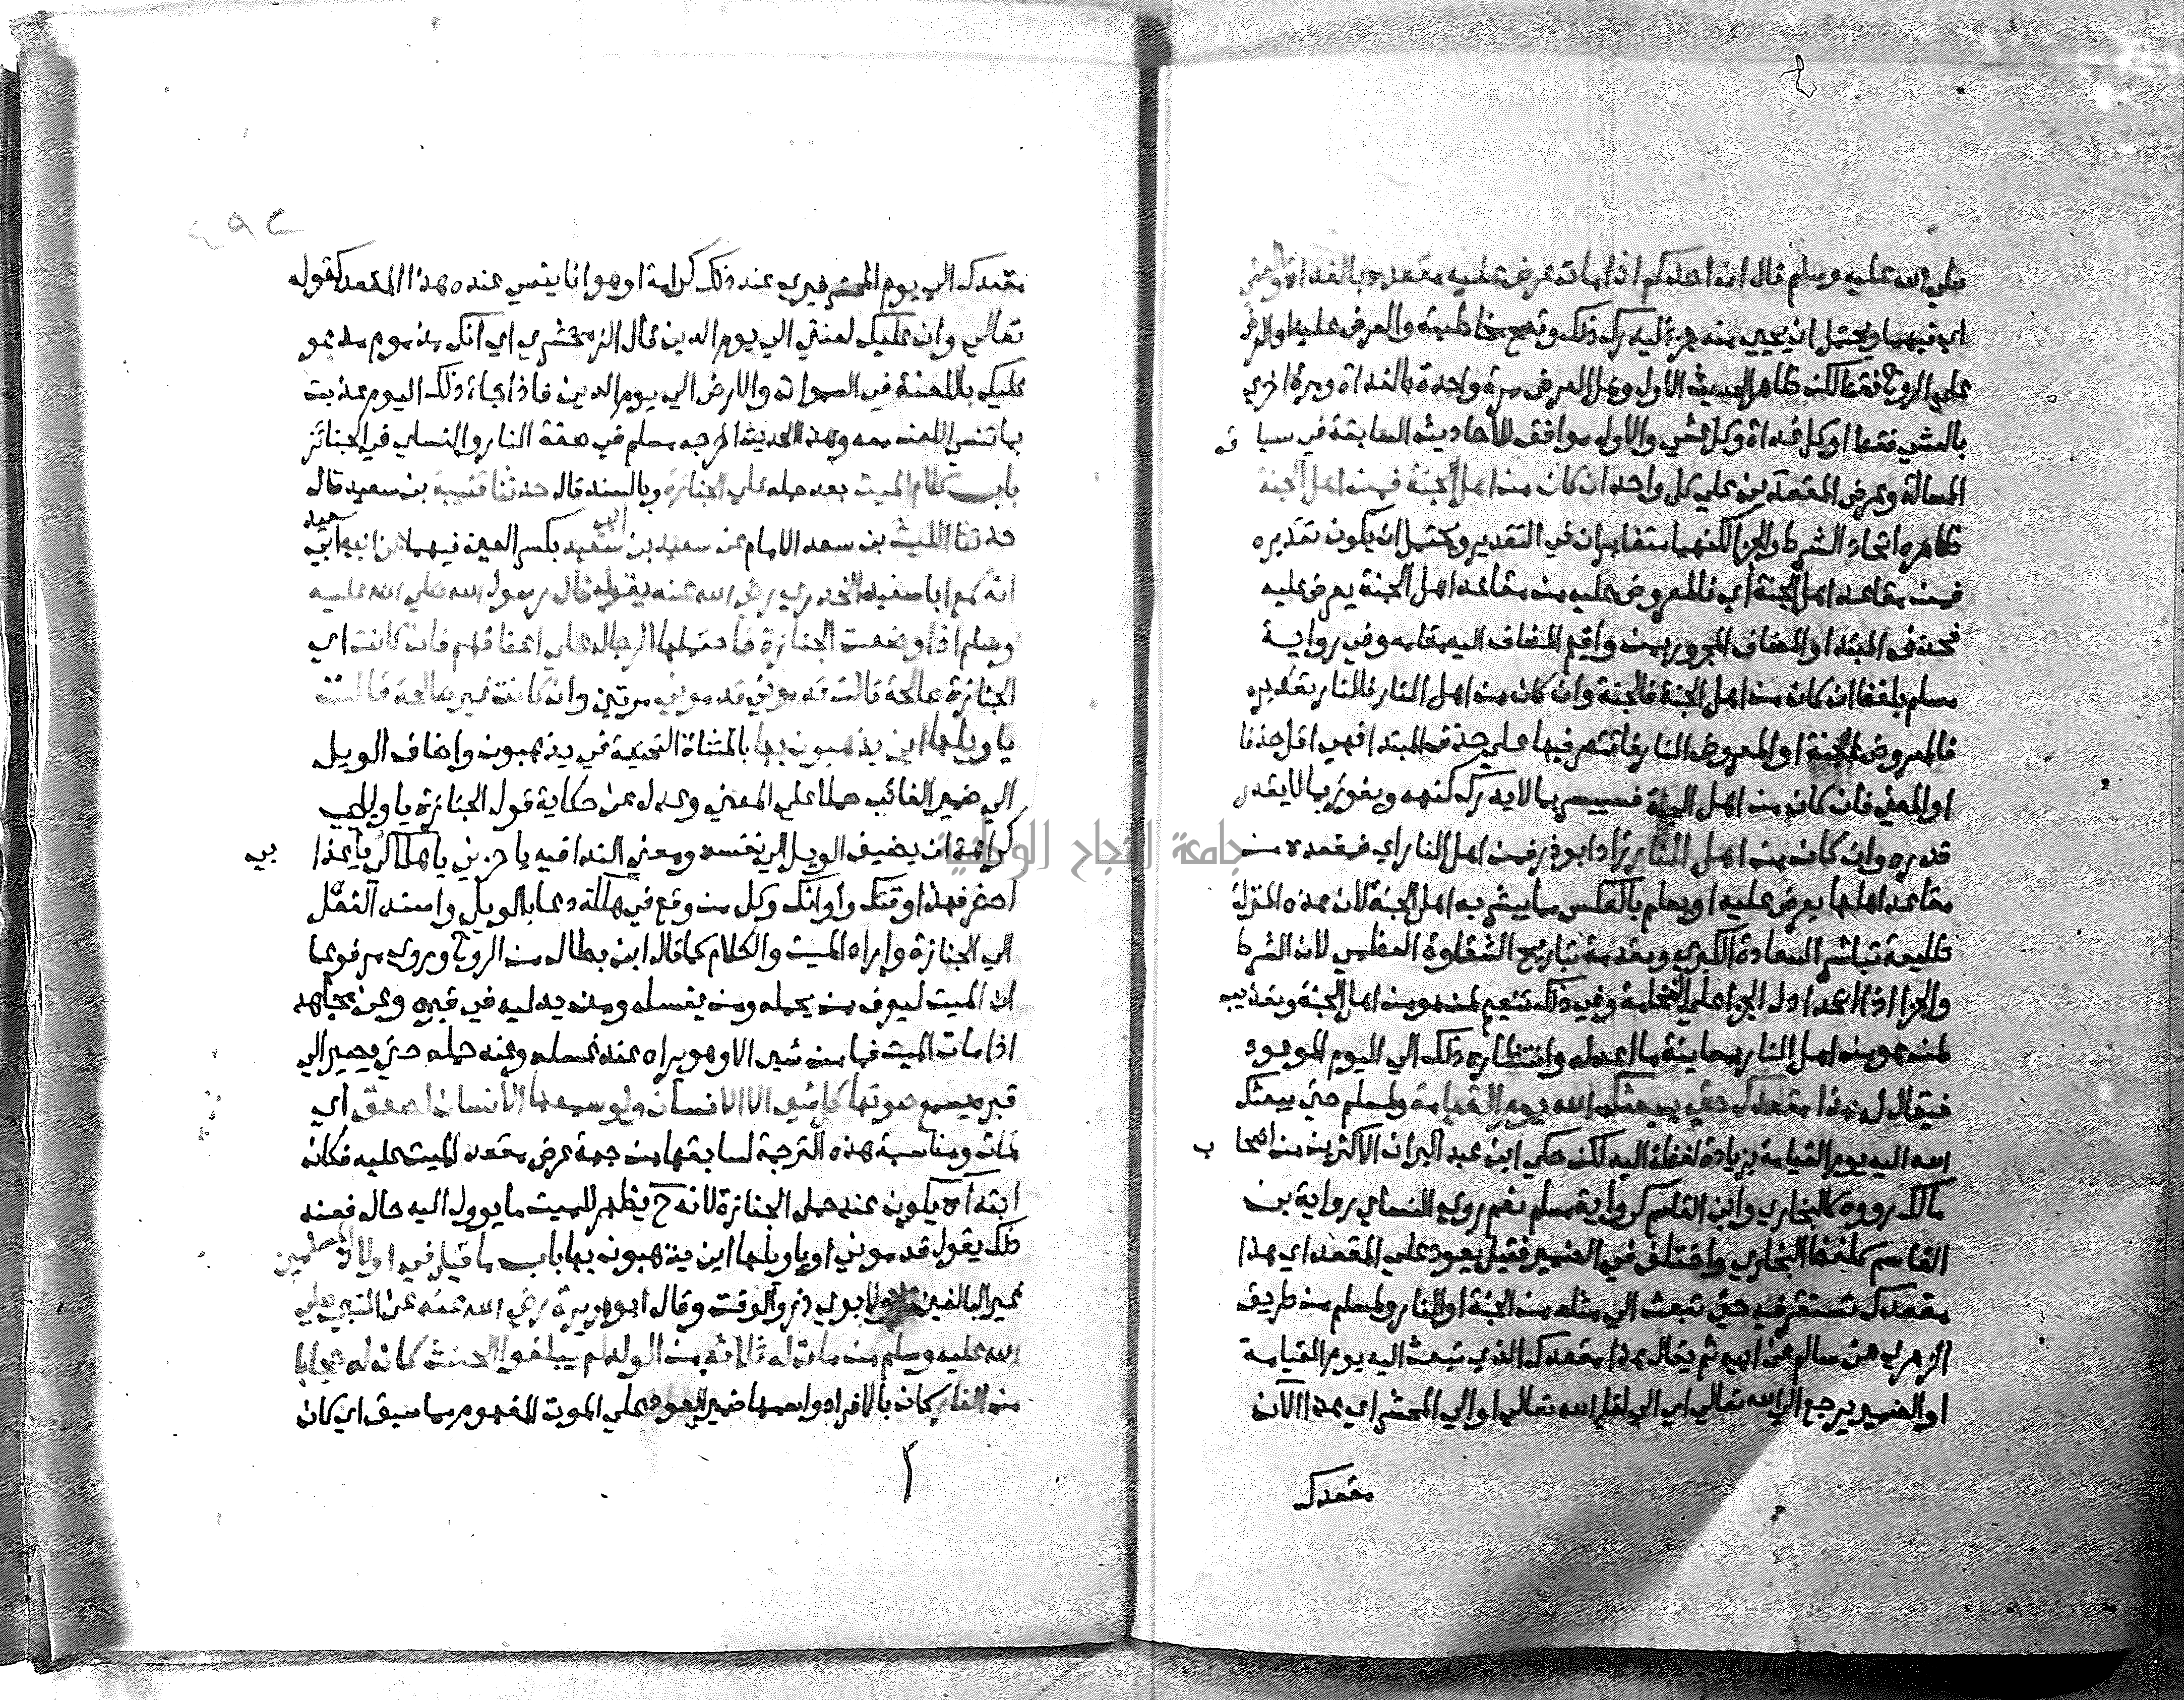 صلي الله عليه وسلم قال ان احدكم اذا مات عرض عليه مقعده بالغداة والعشي
اي فيهما ويحتمل ان يحيي منه جزء ليدرك ذلك وتصح مخاطبته والعرض عليه او العرض
علي الروح فقط لكن ظاهر الحديث الاول وهل العرض مرة واحدة بالغداة ومرة اخري
بالعشي فقط او كل غداة وكل عشي والاول موافق للأحاديث السابقة في سياق
المسالة وعرض المقعدين علي كل واحد ان كان من اهل الجنة فمن اهل الجنة
ظاهره اتحاد الشرط والجزا لكنهما متغايران في التقدير ويحتمل ان يكون تقديره
فمن مقاعد اهل الجنة اي فالمعروض عليه من مقاعد اهل الجنة يعرض عليه
فحذف المبتدا والمضاف المجرور بمن واقيم المضاف اليه مقامه وفي رواية
مسلم بلفظ ان كان من اهل الجنة فالجنة وان كان من اهل النار فالنار تقديره
فالمعروض الجنة او المعروض النار فاقتصر فيها علي حذف المبتدا فهي اقل حذفا
او المعني فان كان من اهل الجنة فسيبسر بما لا يدرك كنهه ويفوز بما لا يقدر
قدره وان كان من اهل النار زاد ابو ذر فمن اهل النار اي فمقعده من
مقاعد اهلها يعرض عليه او يعلم بالعكس مما يبشر به اهل الجنة لان هذه المنزلة
طليعة تباشير السعادة الكبري ومقدمة تباريح الشقاوة العظمي لان الشرط
والجزا اذا اتحدا دل الجزا علي الفخامة وفي ذلك تنعيم لمن هو من اهل الجنة وتعذيب
لمن هو من اهل النار بمعاينة ما اعد له وانتظاره ذلك الي اليوم الموعود
فيقال له هذا مقعدك حتي يبعثك الله يوم القيامة ولمسلم حتي يبعثك
الله اليه يوم القيامة بزيادة لفظة اليه لكن حكي ابن عبد البر ان الاكثرين من اصحاب
مالك رووه كالبخاري وابن القاسم كرواية مسلم نعم روي النساي رواية بن
القاسم كلفظ البخاري واختلف في الضمير فقيل يعود علي المقعد اي هذا
مقعدك تستقر فيه حتي تبعث الي مثله من الجنة او النار ولمسلم من طريق
الزهري عن سالم عن ابيه ثم يقال هذا مقعدك الذي تبعث اليه يوم القيامة
او الضمير يرجع الي الله تعالي اي الي لقاء الله تعالي او الي المحشر اي هذا الآن
مقعدك
٤٩٢
مقعدك الي يوم المحشر فيري عند ذلك كرامة او هوانا ينسي عنده هذا المقعد كقوله
تعالي وان عليك لعنتي الي يوم الدين قال الزمخشري اي انك مذموم مدعو
عليك باللعنة في السموات والارض الي يوم الدين فاذا جاء ذلك اليوم عذبت
بما تنسي اللعن معه وهذا الحديث اخرجه مسلم في صفة النار والنساي في الجنائز
باب كلام الميت بعد حمله علي الجنازة وبالسند قال حدثنا قتيبة بن سعيد قال
حدثنا الليث بن سعد الامام عن سعيد بن ابي سعيد بكسر العين فيهما عن ابيه ابي سعيد
انه سمع ابا سعيد الخدري رضي الله عنه يقول قال رسول الله صلي الله عليه
وسلم اذا وضعت الجنازة فاحتملها الرجال علي اعناقهم فان كانت اي
الجنازة صالحة قالت قدموني قدموني مرتين وان كانت غير صالحة قالت
يا ويلها اين يذهبون بها بالمثناة التحتية في يذهبون واضاف الويل
الي ضمير الغائب حملا علي المعني وعدل عن حكاية قول الجنازة يا ويلي
كراهة ان يضيف الويل الي نفسه ومعني الندا فيه يا حزني يا هلاكي يا عذابي
احضر فهذا وقتك واوانك وكل من وقع في هلكة دعا بالويل واسند الفعل
الي الجنازة واراد الميت والكلام كما قال ابن بطال من الروح وروي مرفوعا
ان الميت ليعرف من يحمله ومن يغسله ومن يدليه في قبره وعن مجاهد
اذا مات الميت فما من شي الا وهو يراه عند غسله وعند حمله حتي يصير الي
قبره يسمع صوتها كل شي الا الانسان ولو سمعها الانسان لصعق اي
لمات ومناسبة هذه الترجمة لسابقها من جهة عرض مقعد الميت عليه فكان
ابتداه يكون عند حمل الجنازة لانه ح يظهر للميت ما يوول اليه حاله فعند
ذلك يقول قدموني او يا ويلها اين يذهبون بها باب ما قيل في اولاد المسلمين
غير البالغين ولابوي ذر والوقت وقال ابو هريرة رضي الله عنه عن النبي صلي
الله عليه وسلم من مات له ثلاثة من الولد لم يبلغوا الحنث كان له حجابا
من النار كان بالافراد واسمها ضمير يعود علي الموت المفهوم مما سبق اي كان